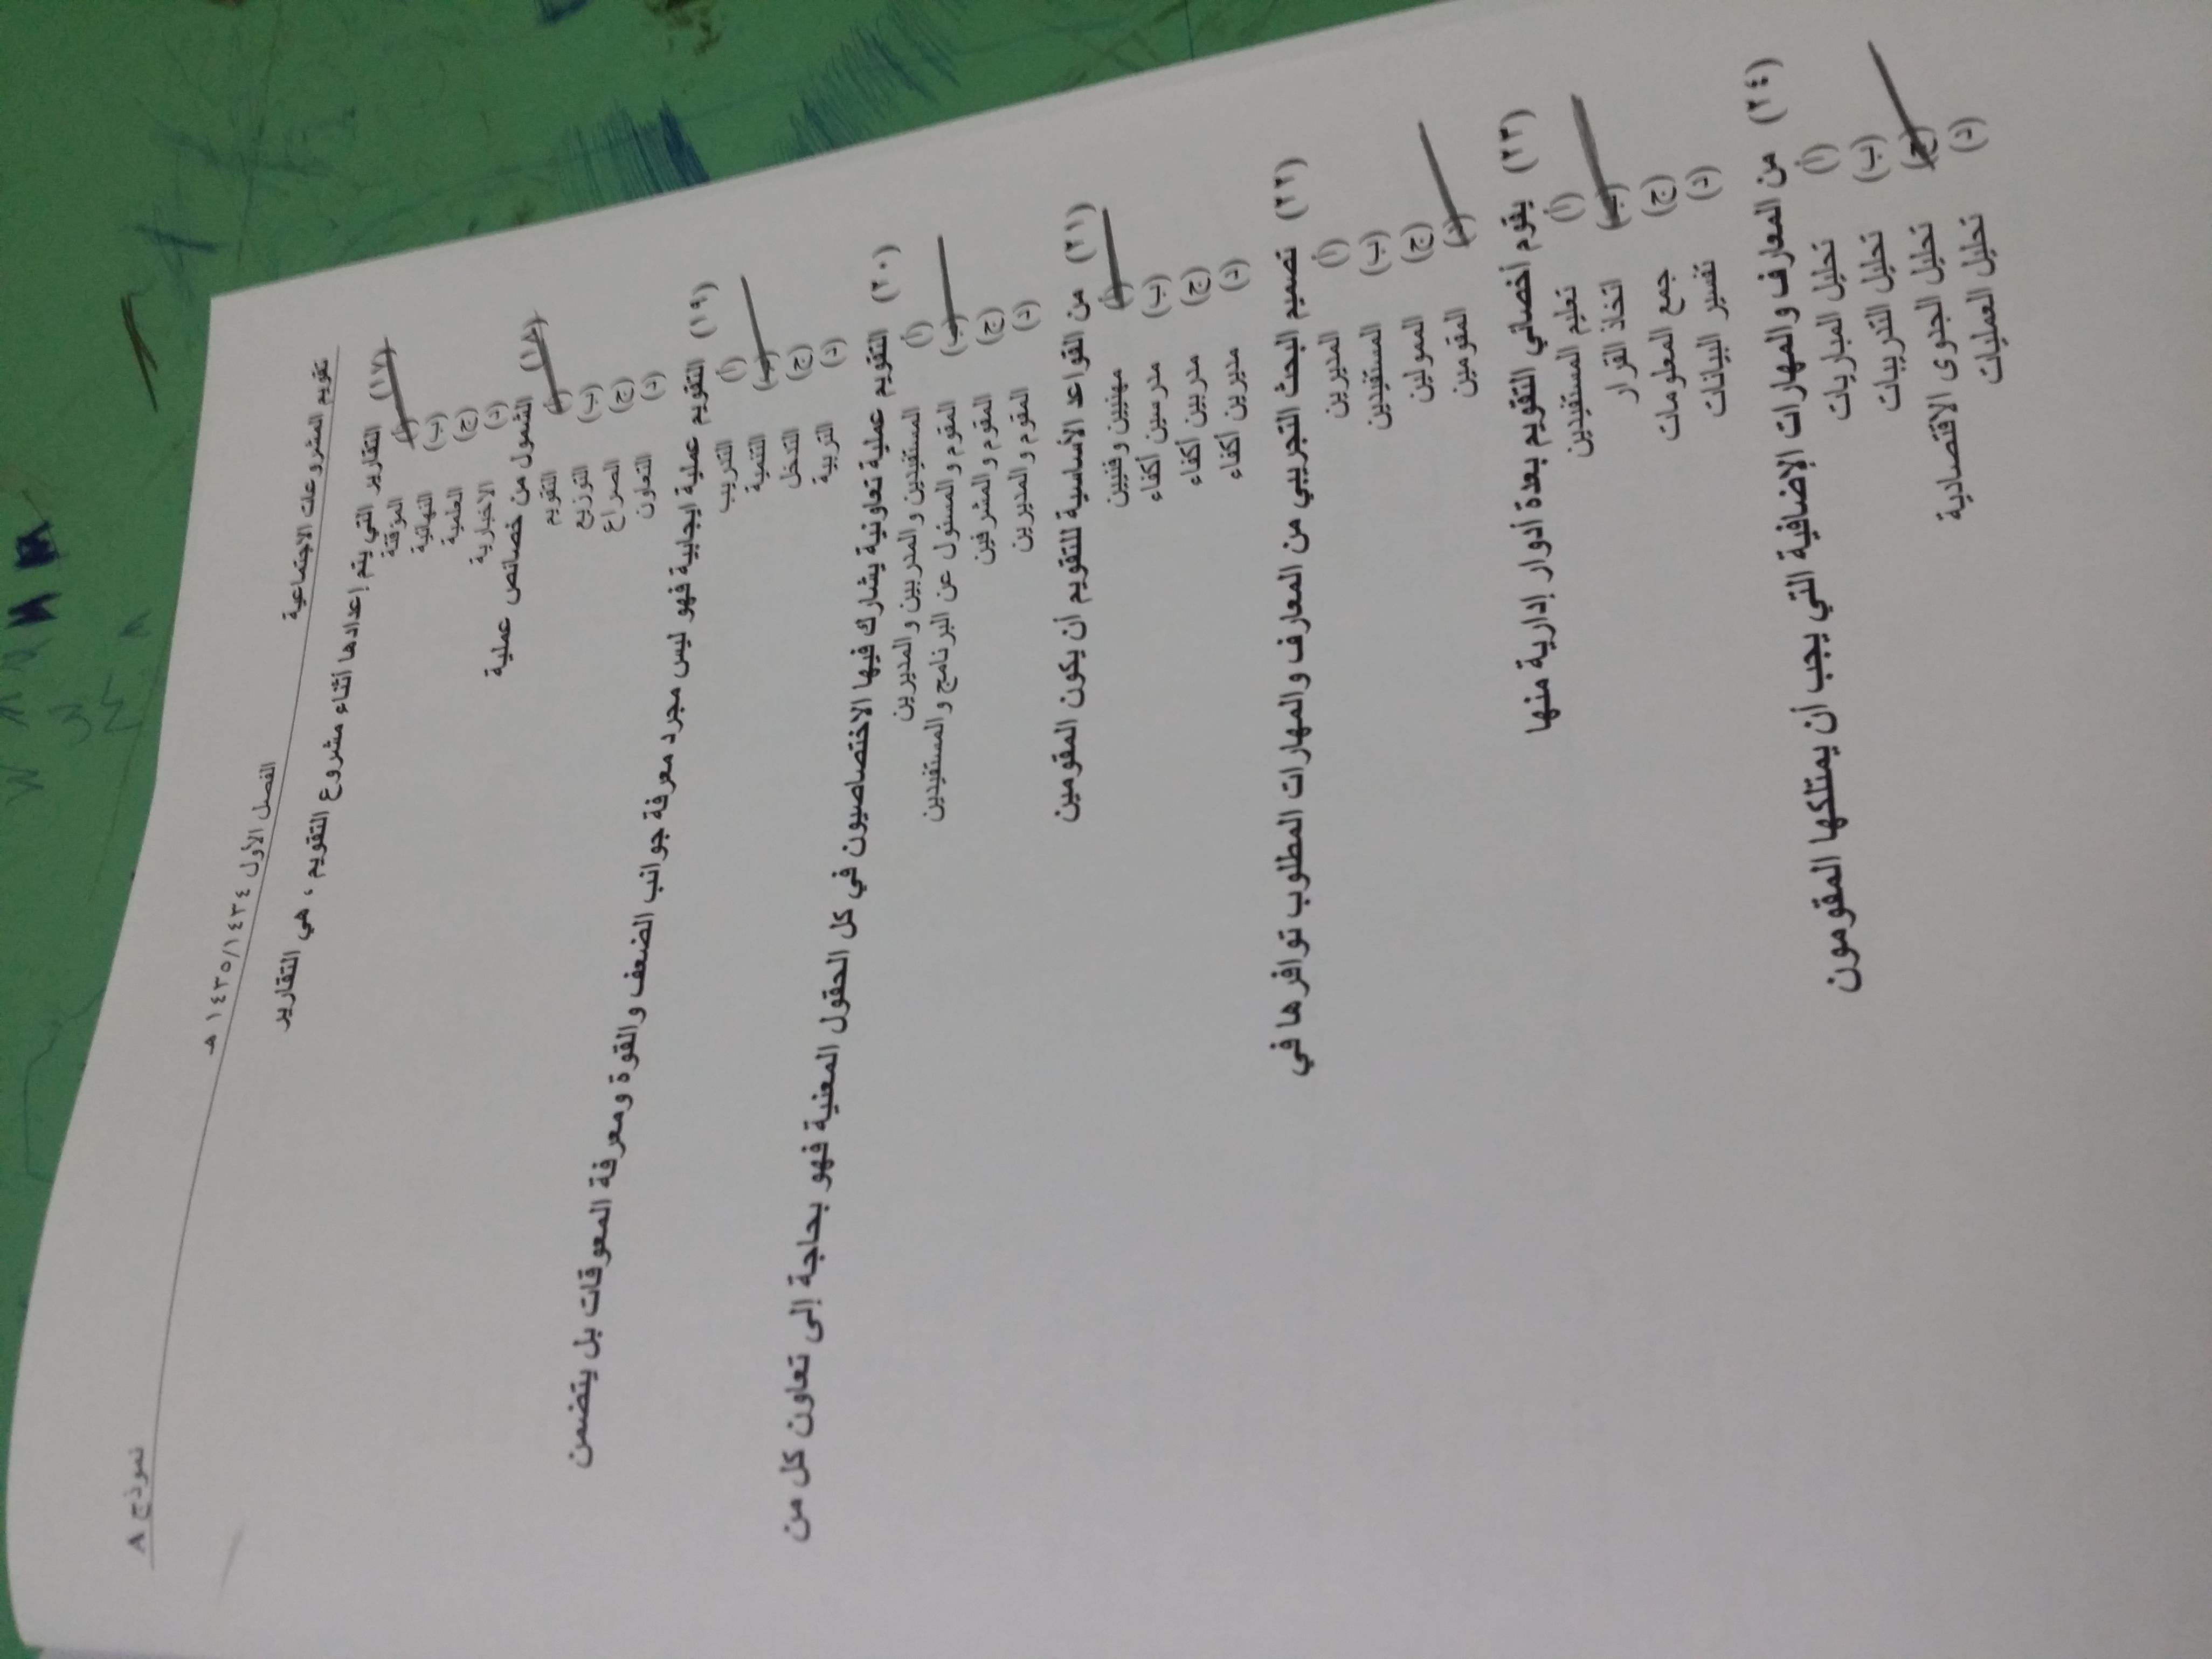 تقويم المشروعات الاجتماعية
الفصل الأول ١٤٣٤/١٤٣٥ هـ
نموذج A
(١٧) التقارير التي يتم إعدادها أثناء مشروع التقويم ، هي التقارير
(أ) المؤقتة
(ب) النهائية
(ج) العلمية
(د) الاخبارية
(١٨) الشمول من خصائص عملية
(أ) التقويم
(ب) التوزيع
(ج) الصراع
(د) التعاون
(١٩) التقويم عملية ايجابية فهو ليس مجرد معرفة جوانب الضعف والقوة ومعرفة المعوقات بل يتضمن
(أ) التدريب
(ب) التنمية
(ج) التدخل
(د) التربية
(٢٠) التقويم عملية تعاونية يشارك فيها الاختصاصيون في كل الحقول المعنية فهو بحاجة إلى تعاون كل من
(أ) المستفيدين والمدربين والمديرين
(ب) المقوم والمسئول عن البرنامج والمستفيدين
(ج) المقوم والمشرفين
(د) المقوم والمديرين
(٢١) من القواعد الأساسية للتقويم أن يكون المقومين
(أ) مهنيين وفنيين
(ب) مدرسين أكفاء
(ج) مدربين أكفاء
(د) مديرين أكفاء
(٢٢) تصميم البحث التجريبي من المعارف والمهارات المطلوب توافرها في
(أ) المديرين
(ب) المستفيدين
(ج) الممولين
(د) المقومين
(٢٣) يقوم أخصائي التقويم بعدة أدوار إدارية منها
(أ) تعليم المستفيدين
(ب) اتخاذ القرار
(ج) جمع المعلومات
(د) تفسير البيانات
(٢٤) من المعارف والمهارات الإضافية التي يجب أن يمتلكها المقومون
(أ) تحليل المباريات
(ب) تحليل التدريبات
(ج) تحليل الجدوى الاقتصادية
(د) تحليل العمليات